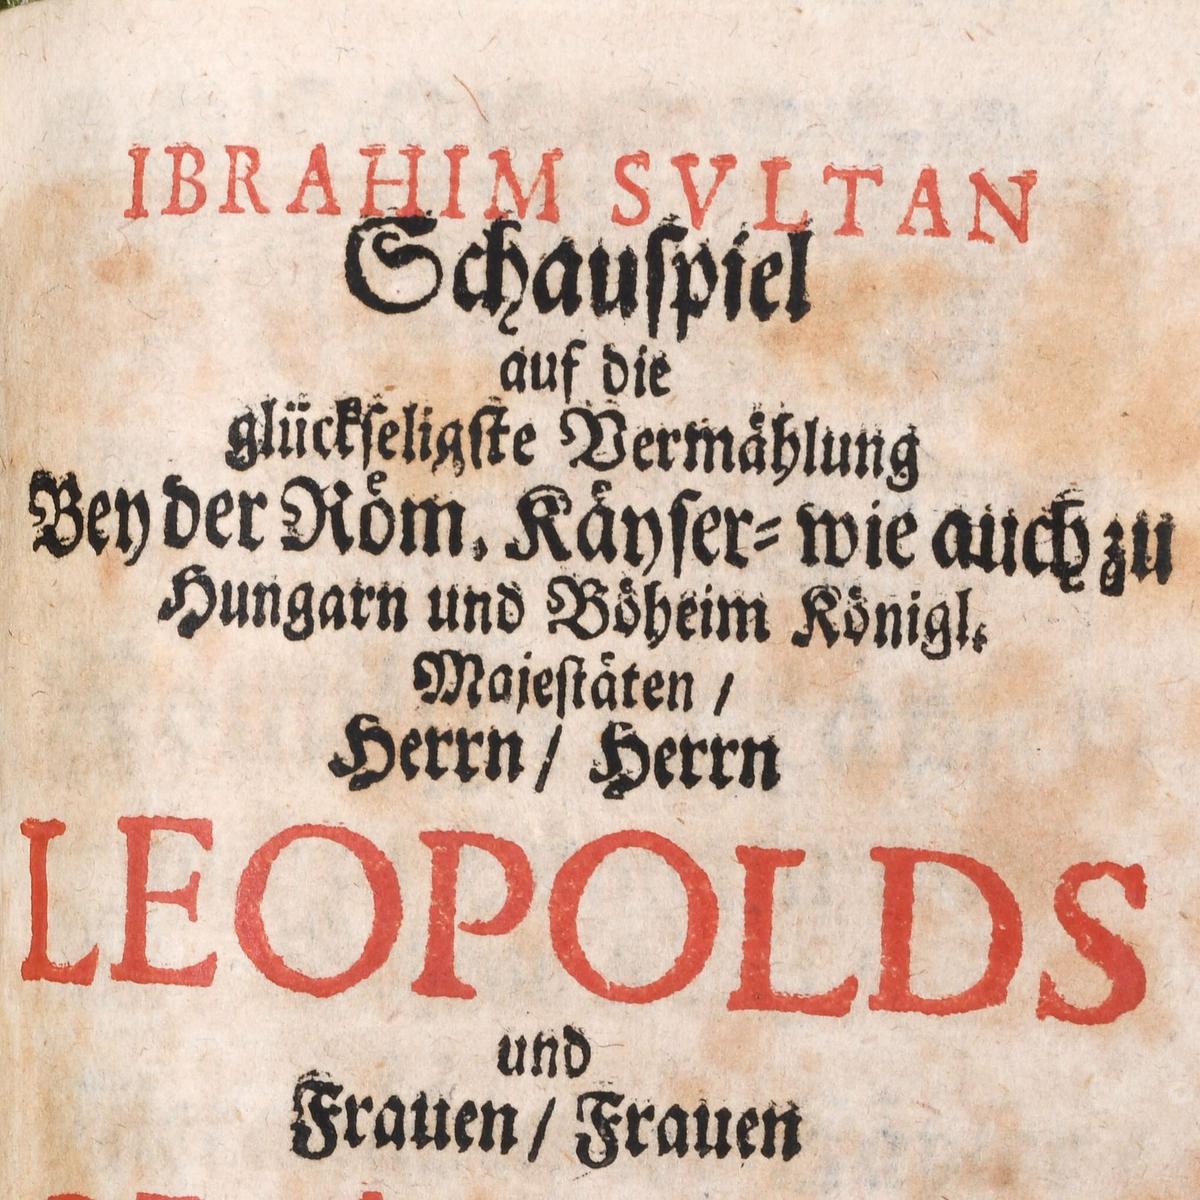 IBRAHIM SVLTAN
Schauſpiel
auf die
glückſeligſte Vermählung
Bey der Röm. Käyſer= wie auch zu
Hungarn und Böheim Königl.
Majeſtäten /
Herrn / Herrn
LEOPOLDS
und
Frauen / Frauen